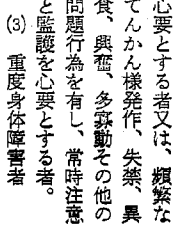 必要とする者又は、頻繁な
てんかん様発作、失禁、異
食、興奮、多寡動その他の
問題行為を有し、常時注意
と監護を必要とする者。
(3) 重度身体障害者